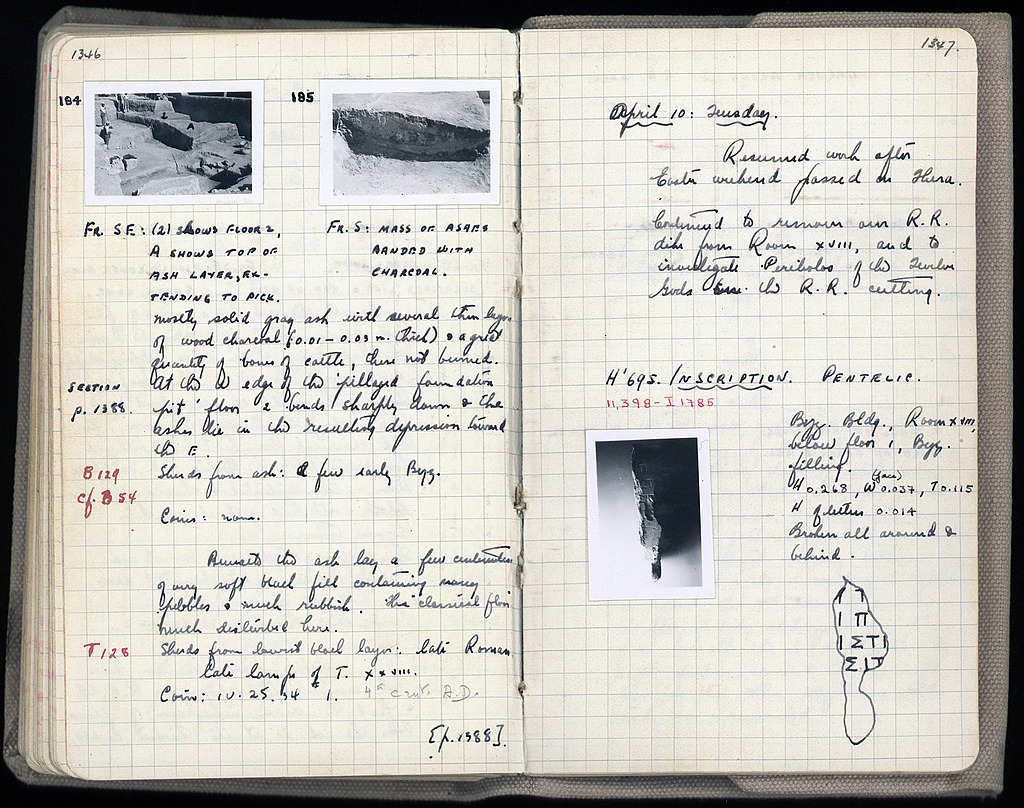 1346
184
185
FR. SE: (2) SHOWS FLOOR 2,
A SHOWS TOP OF
ASH LAYER, EX-
TENDING TO PICK.
FR. S: MASS OF ASHES
BANDED WITH
CHARCOAL.
mostly solid gray ash with several thin layers
of wood charcoal (0.01 – 0.03 m. thick) & a great
quantity of bones of cattle, these not burned.
SECTION
p. 1388.
At the W edge of the pillaged foundation
pit floor 2 bends sharply down & the
ashes lie in the resulting depression toward
the E.
B 129
cf. B 54
Sherds from ash: a few early Byz.
Coins: none.
Beneath the ash lay a few centimeters
of very soft black fill containing many
pebbles & much rubbish. The classical floor
much disturbed here.
T 128
Sherds from lowest black layer: late Roman
Late lamps of T. xxviii.
Coin: IV. 25. 34 #1. 4th cent. A.D.
[p. 1388].
1347.
April 10: Tuesday.
Resumed work after
Easter weekend passed on Thera.
Continued to remove our R.R.
dike from Room XVIII, and to
investigate Peribolos of the Twelve
Gods the R.R. cutting.
H' 695. INSCRIPTION. PENTELIC.
11,398 - I 1785
Byz. Bldg., Room XVIII,
below floor 1, Byz.
filling.
(face)
H 0.268, W 0.037, T 0.115
H of letters 0.014
Broken all around &
behind.
Ι Π
Ι Σ Τ Ι
Σ Ι Τ